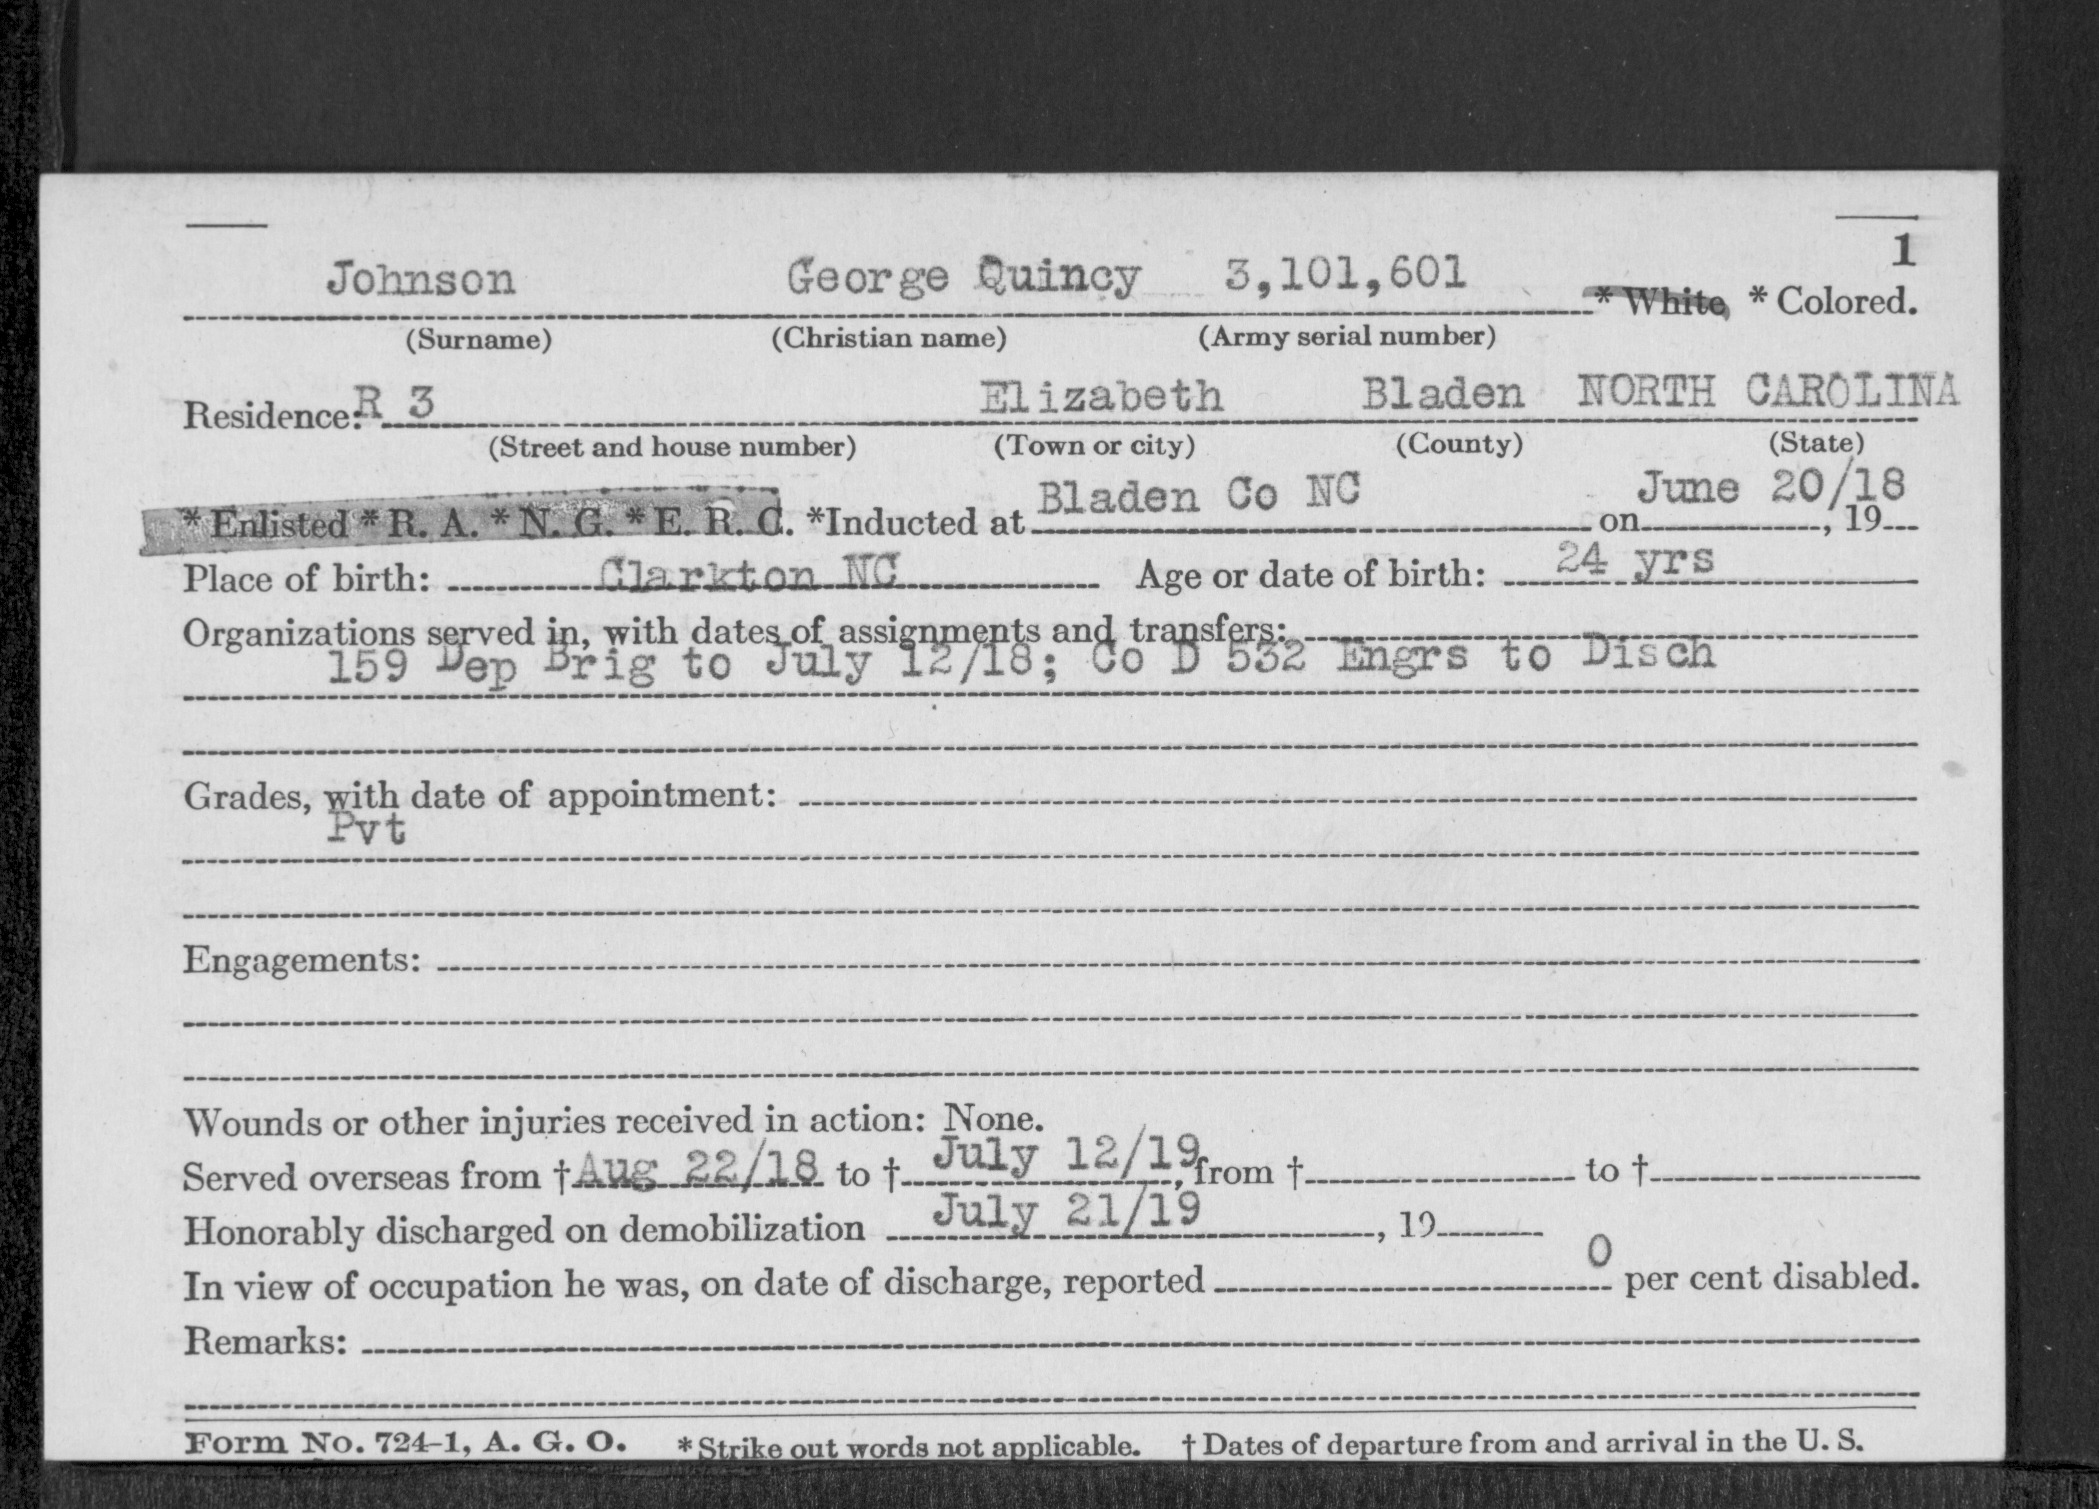 1
Johnson George Quincy 3,101,601 * White, * Colored.
(Surname) (Christian name) (Army serial number)
Residence: R 3 Elizabeth Bladen NORTH CAROLINA
(Street and house number) (Town or city) (County) (State)
* Enlisted * R. A. * N. G. * E. R. C. *Inducted at Bladen Co NC on June 20/18, 19
Place of birth: Clarkton NC Age or date of birth: 24 yrs
Organizations served in, with dates of assignments and transfers:
159 Dep Brig to July 12/18; Co D 532 Engrs to Disch
Grades, with date of appointment:
Pvt
Engagements:
Wounds or other injuries received in action: None.
Served overseas from † Aug 22/18 to † July 12/19, from † to †
Honorably discharged on demobilization July 21/19, 19
In view of occupation he was, on date of discharge, reported 0 per cent disabled.
Remarks:
Form No. 724-1, A. G. O. * Strike out words not applicable. † Dates of departure from and arrival in the U. S.